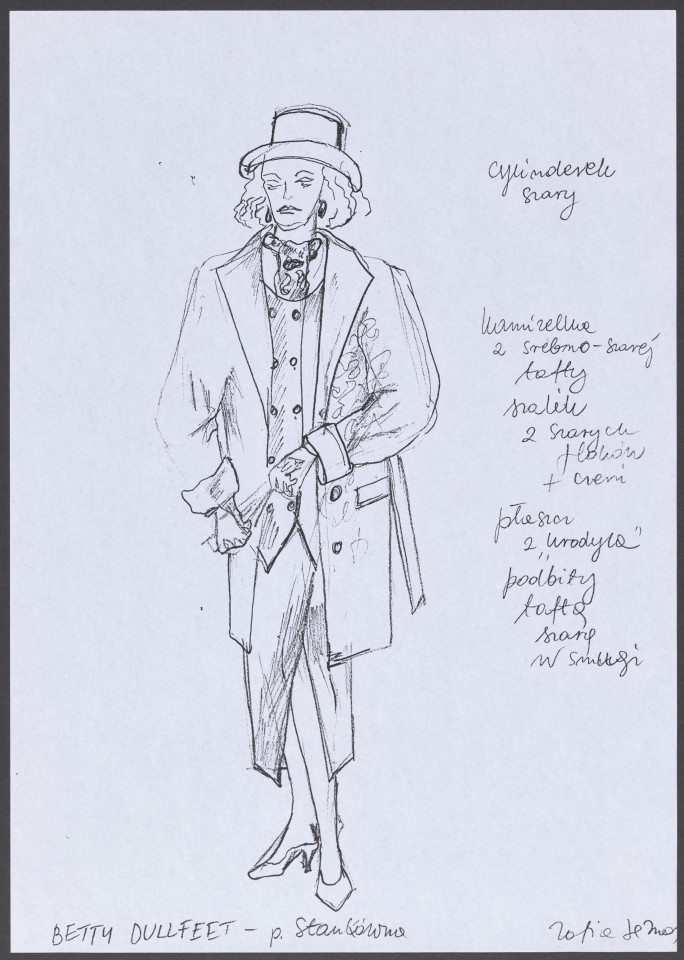 cylinderek
szary
kamizelka
z srebrno-szarej
tafty
szalik
z szarych
+ czerń
płaszcz
z „urodylą"
podbity
taftą
szarą
w smugi
BETTY DULLFEET – p. Stankówna
Zofia de Ines